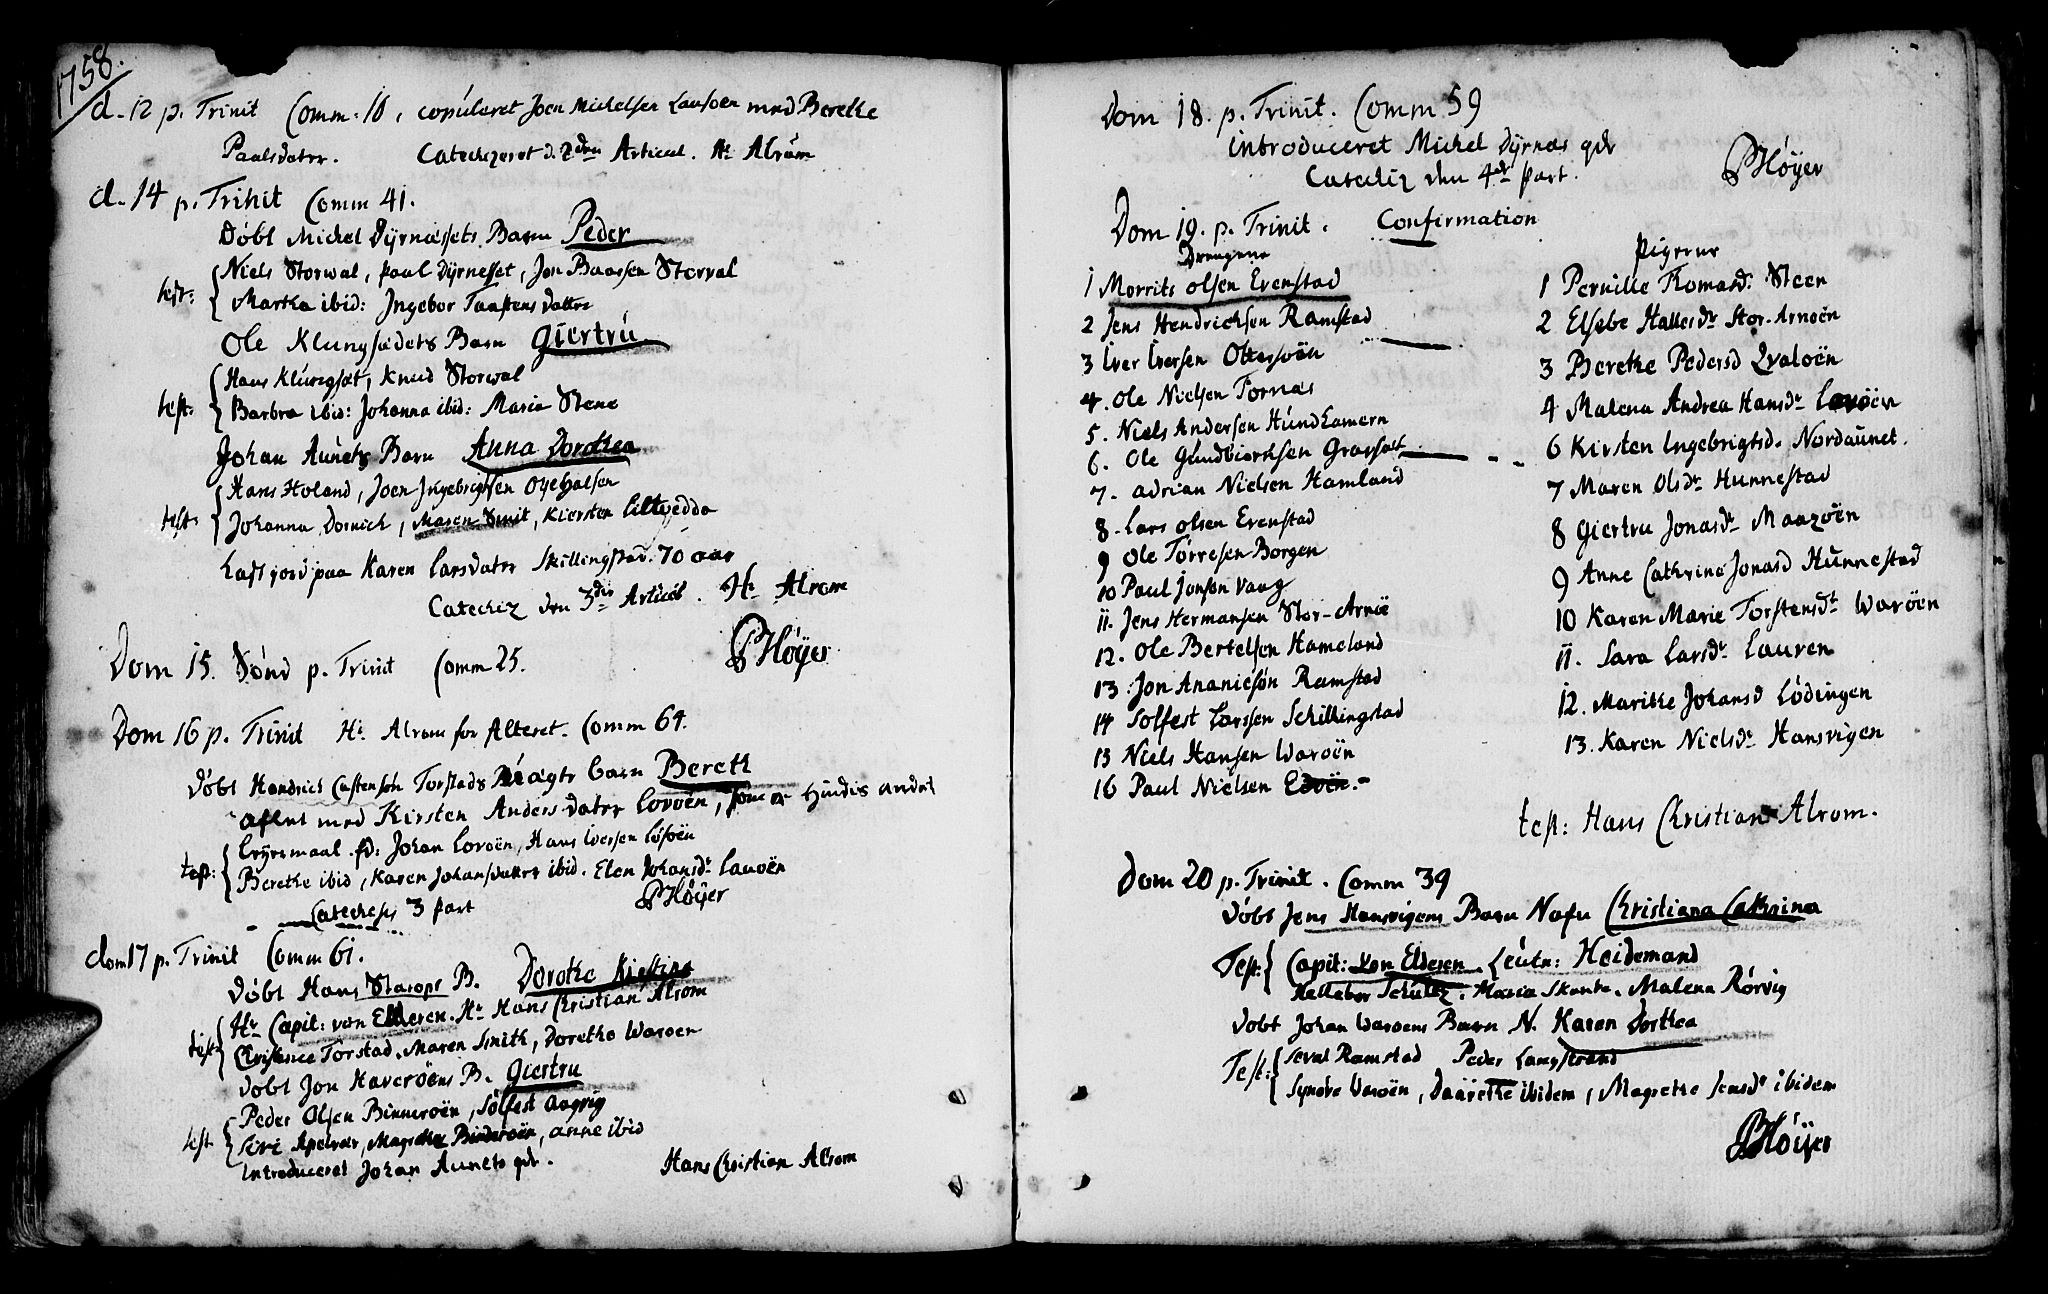 1758.
d. 12 p. Trinit Comm: 16, copúleret Joen Michelsen Lausöen med Berethe
Paalsdatter. Catechizeret d. 2den Articul. Hr Alrom
d. 14 p. Trinit Comm 41.
Döbt Michel Dÿrnæssets Barn Peder
test: Niels Storwal, Paul Dÿrnesset, Jon Baarsen Storval
Martha ibid: Ingebor Taastensdatter
Ole Klungsødets Barn Giertrú
test: Hans Klúngsæt, Knud Storwal
Barbra ibid: Johanna ibid: Maria Stene
Johan Aúnets Barn Anna Dorothea
test: Hans Holand, Joen Ingebrigtsen Oyehalsen
Johanna Dornich, Maren Smit, Kiersten Litlvedda
Kast jord paa Karen Larsdatter Skillingstad. 70 aar
Catechiz den 3die Articul. Hr Alrom
PHöÿer
Dom 15. Sönd p. Trinit Comm 25.
Dom 16 p. Trinit Hr Alrom for Alteret. Comm 64.
Döbt Hendrich Castensön Torstads uægte barn Bereth
aflet med Kirsten Andersdatter Lovöen, som er hendis andet
Leyermaal. fd: Johan Lovöen, Hans Iversen Lösöen
test: Berethe ibid, Karen Johansdatter ibid. Elen Johansdr Lauöen
PHöÿer
Catechesis 3 part
dom 17 p. Trinit Comm 61.
Döbt Hans Starops B. Dorothe Kirstina
test: Hr Capit: von Elderen. Hr Hans Christian Alrom
Christence Torstad. Maren Smith, Dorethe Waroen
Döbt Jon Haveröens B. Giertru
test Peder Olsen Binneroën, Solfest Aagvig
Siri Apelvær, Magrethe Binderoën, anne ibid
Introduceret Johan Aunets qdr. Hans Christian Alrom
Dom 18. p. Trinit. Comm 59
introduceret Michel Dÿrnæs qdr
Catechiz den 4de Part. PHöÿer
Dom 19. p. Trinit. Confirmation
Drengene
1 Morrits Olsen Evenstad
2 Jens Hendrichsen Ramstad
3 Iver Iversen Ottersöën
4. Ole Nielsen Tornæs
5. Niels Andersen Húndhamern
6. Ole Gúndbiornsen Grøssæt
7. Adrian Nielsen Hamland
8. Lars Olsen Evenstad
9 Ole Törresen Borgen
10 Paul Jonson Vaag
11. Jens Hermansen Stor-Arnöe
12. Ole Bertelsen Hameland
13. Jon Ananiesön Ramstad
14 Solfest Larssen Schillingstad
15 Niels Hansen Waroën
16 Paul Nielsen Edöën.
Pigerne
1 Pernille Tomasd: Steen
2 Elsebe Hallesdr Stor-Arnöën
3 Berethe Pedersd Qvaloën
4 Malena Andrea Hansdr Lovöën
6 Kirsten Ingebrigtsd. Nordaúnet.
7 Maren Olsdr Hunnestad
8 Giertru Jonasdr Maazöën
9 Anne Cathrine Jonasd Húnnestad
10 Karen Marie Torstensdr Waröen
11. Sara Larsdr Lauren
12. Marithe Johansd Lödingen
13. Karen Nielsdr Hansvigen
test: Hans Christian Alrom.
Dom 20 p. Trinit. Comm 39
Döbt Jens Hansvigens Barn Nafn Christiana Cathrina
Test: Capit: von Elderen. Leutn: Heidemand
Hellebor Schultz. Maria Skante. Malena Rörvig
Döbt Johan Waroens Barn N. Karen Dorthea
Test: Seval Ramstad Peder Langstrand
Synove Waroën, Daarethe ibidem, Magrethe Jensdr ibidem
PHöÿer